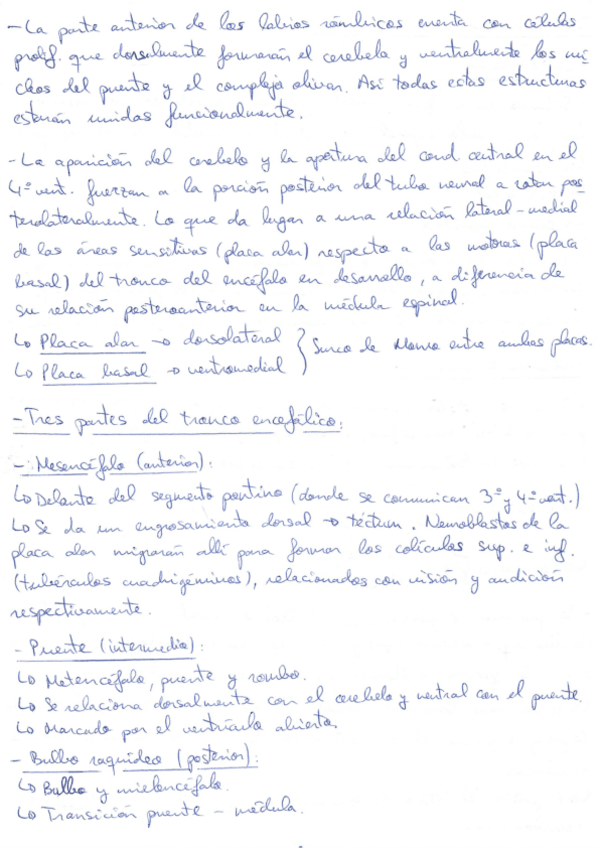 - La parte anterior de los labios rómbicos cuenta con células
prolif. que dorsalmente formarán el cerebelo y ventralmente los nú-
cleos del puente y el complejo olivar. Así todas estas estructuras
estarán unidas funcionalmente.
- La aparición del cerebelo y la apertura del cond central en el
4º vent. fuerzan a la porción posterior del tubo neural a rotar pos-
terolateralmente. Lo que da lugar a una relación lateral-medial
de las áreas sensitivas (placa alar) respecto a las motoras (placa
basal) del tronco del encéfalo en desarrollo, a diferencia de
su relación posteroanterior en la médula espinal.
↳ Placa alar → dorsolateral } Surco de Monro entre ambas placas.
↳ Placa basal → ventromedial
- Tres partes del tronco encefálico:
- Mesencéfalo (anterior):
↳ Delante del segmento pontino (donde se comunican 3º y 4º vent.)
↳ Se da un engrosamiento dorsal → téctum. Neuroblastos de la
placa alar migrarán allí para formar los colículos sup. e inf.
(tubérculos cuadrigéminos), relacionados con visión y audición
respectivamente.
- Puente (intermedio):
↳ Metencéfalo, puente y rombo.
↳ Se relaciona dorsalmente con el cerebelo y ventral con el puente.
↳ Marcado por el ventrículo abierto.
- Bulbo raquídeo (posterior):
↳ Bulbo y mielencéfalo.
↳ Transición puente - médula.